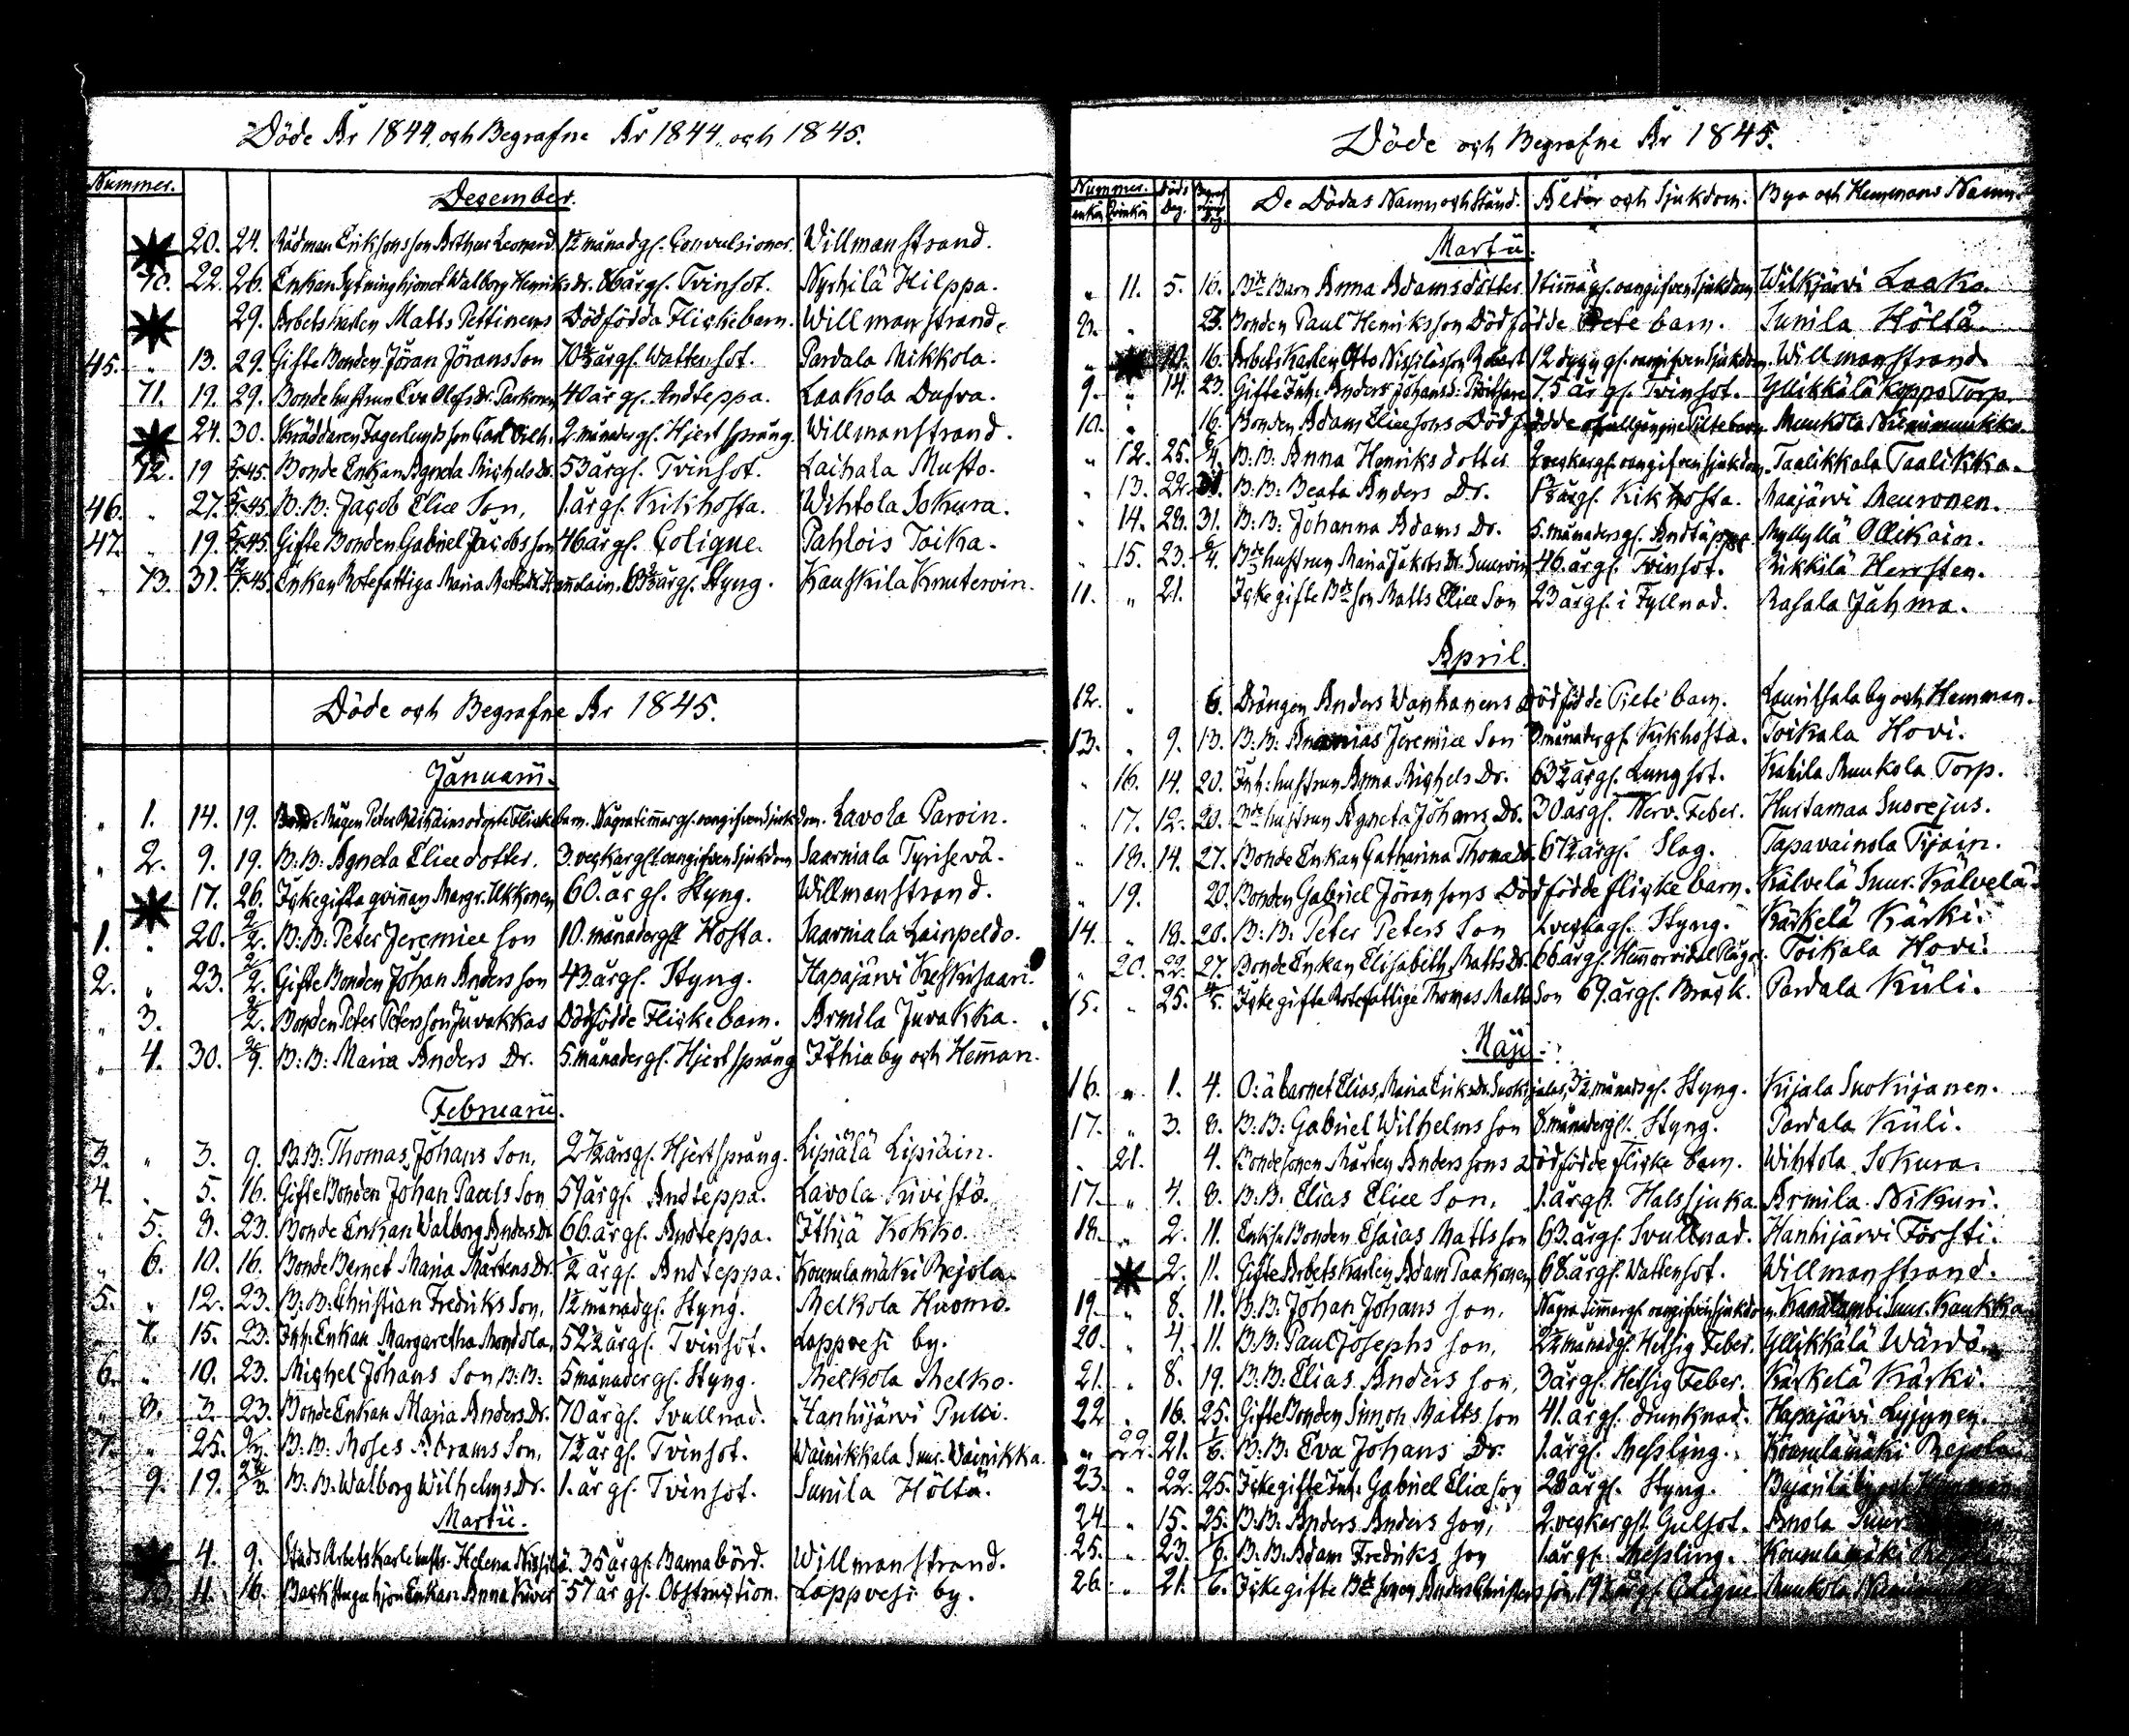 Döde År 1844, och Begrafne År 1844, och 1845.
Nummer.
December.
20. 24. Rådman Eriksons son Arthur Leonard. 1½ månad gl. Convulsioner. Willmanstrand.
70. 22. 26. Enkan Sytningshjonet Walborg Henriksdr. 86 år gl. Tvinsot. Nyrhilä Hilppa.
29. Arbetskarlen Matts Pettinens Dödfödda Flickebarn. Willmanstrand.
45. " 13. 29. Gifte Bonden Jöran Jörans Son 70½ år gl. Wattensot. Pardala Mikkola.
71. 19. 29. Bondehustrun Eva Olofsdr. 40 år gl. Andteppa. Laakola Dufva.
24. 30. Skräddaren Fagerlunds son Carl Vilh. 2. månader gl. Hjertsprång. Willmanstrand.
72. 19 5/1-45. Bonde Enkan Agneta Michelsdr. 53 år gl. Tvinsot. Laihala Musto.
46. " 27. 5/1-45. B: B: Jacob Eliæ Son, 1. år gl. Kikhosta. Wihtola Sokura.
47. " 19. 5/1-45. Gifte Bonden Gabriel Jacobsson 46 år gl. Colique. Pahlois Toika.
" 73. 31. 12/1-45. Enkan Rotefattiga Maria Mattsdr. 63 år gl. Styng. Kauskila Knuteroin.
Döde och Begrafne År 1845.
Januarii.
" 1. 14. 19. Peter Flickebarn. Några timmar gl. oangifven sjukdom. Lavola Paroin.
" 2. 9. 19. B: B: Agneta Eliædotter. 3. veckar gl. oangifven sjukdom Saarniala Tyrisevä.
17. 26. Ickegifta qvinnan Margr. Ukkonen 60. år gl. Styng. Willmanstrand.
1. " 20. 2/2. B: B: Peter Jeremiæ son 10. månader gl. Hosta. Saarniala Lainpeldo.
2. " 23. 2/2. Gifte Bonden Johan Andersson 43. år gl. Styng. Hapajärvi Keskisaari.
" 3. 2/2. Bonden Peter Petersson Juvakkas Dödfödde Flickebarn. Armila Juvakka.
" 4. 30. B: B: Maria Anders Dr. 5. månader gl. Hjertsprång Ithia by och Hemman.
Februarii.
3. " 3. 9. B: B: Thomas Johans Son, 2½ års gl. Hjertsprång. Lipiälä Lipiäin.
4. " 5. 16. Gifte Bonden Johan Pauls Son 59 år gl. Andteppa. Lavola Kivistö.
" 5. 8. 23. Bonde Enkan Walborg Anders Dr 66. år gl. Andteppa. Ithiä Kokko.
" 6. 10. 16. Bonde Barnet Maria Mårtens Dr. ½ år gl. Andteppa. Kourulamäki Rejola.
5. " 12. 23. B: B: Christian Fredriks Son, 1½ månad gl. Styng. Melkola Huomo.
" 7. 15. 23. Inh. Enkan Margaretha Mondola, 52½ år gl. Tvinsot. Lappvesi by.
6. " 10. 23. Michel Johans Son, B: B: 5 månader gl. Styng. Melkola Melko.
" 8. 3 23. Bonde Enkan Maria Anders Dr. 70 år gl. Svullnad. Hanhijärvi Pulli.
7. " 25. B: B: Moses Abrams Son, 7½ år gl. Tvinsot. Wainikkala Suur. Wainikka.
" 9. 19. B: B: Walborg Wilhelms Dr. 1. år gl. Tvinsot. Sunila Höltä.
Martii.
4. 9. Stads Arbetskarlehustr. Helena 35 år gl. Barnabörd. Willmanstrand.
10. 11. 16. Enkan Anna 57 år gl. Obstruction. Lappvesi by.
Döde och Begrafne År 1845.
Nummer. Döds Dag. Begrafnings Dag. De Dödas Namn och Stånd. Ålder och Sjukdom. Byo och Hemmans Namn.
Martii.
" 11. 5. 16. Bde Barn Anna Adamsdotter 1 timma gl. oangifven sjukdom Wilkjärvi Laaka.
8. " 23. Bonden Paul Henriksson Dödfödde Piltebarn. Sunila Höltä.
" 10. 16. Arbets Karlen Otto 12 dygn gl. oangifven sjukdom. Willmanstrand
9. " 14. 23. Gifte Inh. Anders Johans 75 år gl. Tvinsot. Yllikkälä Koppo Torp.
10. " 16. Bonden Adam Eliæsons Dödfödde ofullgångne Piltebarn. Muukola Niemimuukka.
" 12. 25. B: B: Anna Henriksdotter veckar gl. oangifven sjukdom. Taalikkala Taalikka.
" 13. 22. B: B: Beata Anders Dr. år gl. Kikhosta. Maajärvi Meuronen.
" 14. 28. 31. B: B: Johanna Adams Dr. 5. månader gl. Andtäppa Myllylä Ollikain.
" 15. 23. 6/4. Bde hustrun Maria Jakobs Dr. 46. år gl. Tvinsot. Rikkilä Hersten.
11. " 21. Icke gifte Bde son Matts Eliæ Son 23 år gl. i Fyllnad. Rasala Jähma.
April.
12. " 6. Drängen Anders Vanhanens Dödfödde Pilte barn. Lauritsala by och Hemman.
13. " 9. 13. B: B: Ananias Jeremiæ Son månader gl. Kikhosta. Toikala Hovi.
" 16. 14. 20. Inh: hustrun Anna Michels Dr. 63½ år gl. Lungsot. Kakila Muukola Torp.
" 17. 12. 20. Bde hustrun Agneta Johans Dr. 30 år gl. Nerv. Feber. Hurtamaa Suorejus.
" 18. 14. 27. Bonde Enkan Catharina Thomædr. 67½ år gl. Slag. Tapavainola Tijain.
" 19. 20. Bonden Gabriel Jöransons Dödfödde flickebarn. Kälvelä Suur. Kälvelä.
14. " 18. 20. B: B: Peter Peters Son veckar gl. Styng. Kärkelä Kärki.
" 20. 22. 27. Bonde Enkan Elisabeth Matts Dr. 66 år gl. Toikala Hovi.
15. " 25. 4/5. Icke gifte Rotefattige Thomas Matts Son 69. år gl. Bråck. Pardala Küli.
Maji.
16. " 1. 4. O: ä barnet Elias, Maria Eriksdr. 3½ månads gl. Styng. Kijala Suokijanen.
17. " 3. 8. B: B: Gabriel Wilhelms son 8. månader gl. Styng. Pardala Küli.
" 21. 4. Bondesonen Mårten Anderssons Dödfödde flicke barn. Wihtola Sokura.
17. " 4. 8. B: B: Elias Eliæ Son, 1. år gl. Halssjuka Armila Nikuri.
18. " 2. 11. Enkl. Bonden Esaias Mattsson 63. år gl. Svullnad. Hanhijärvi Försti.
2. 11. Gifte Arbetskarlen Adam Paakonen 68. år gl. Wattensot. Willmanstrand.
19. " 8. 11. B: B: Johan Johans son, Några timmar gl. oangifven sjukdom. Kanalambi Suur. Kaukka
20. " 4. 11. B: B: Paul Josephs son, 2½ månad gl. Hetsig Feber. Yllikkälä Wärdö.
21. " 8. 19. B: B: Elias Anders son, 3 år gl. Hetsig Feber. Kärkelä Kärki.
22 " 16. 25. Gifte Bonden Simon Matts son 41. år gl. drunknad. Hapajärvi Lyijynen.
" 22. 21. 1/6. B: B: Eva Johans Dr. 1. år gl. Messling. Kourulamäki Rejola
23. " 22. 25. Icke gifte Inh: Gabriel Eliæ son 28 år gl. Styng. by och Hemman.
24 " 15. 25. B: B: Anders Anders son, 2. veckar gl. Gulsot. Anola Suur
25. " 23. 6. B: B: Adam Fredriks son 1. år gl. Messling. Kourulamäki Rejola
26. " 21. 6. Icke gifte Bde sonen Anders Christersson 19½ år gl. Colique Muukola